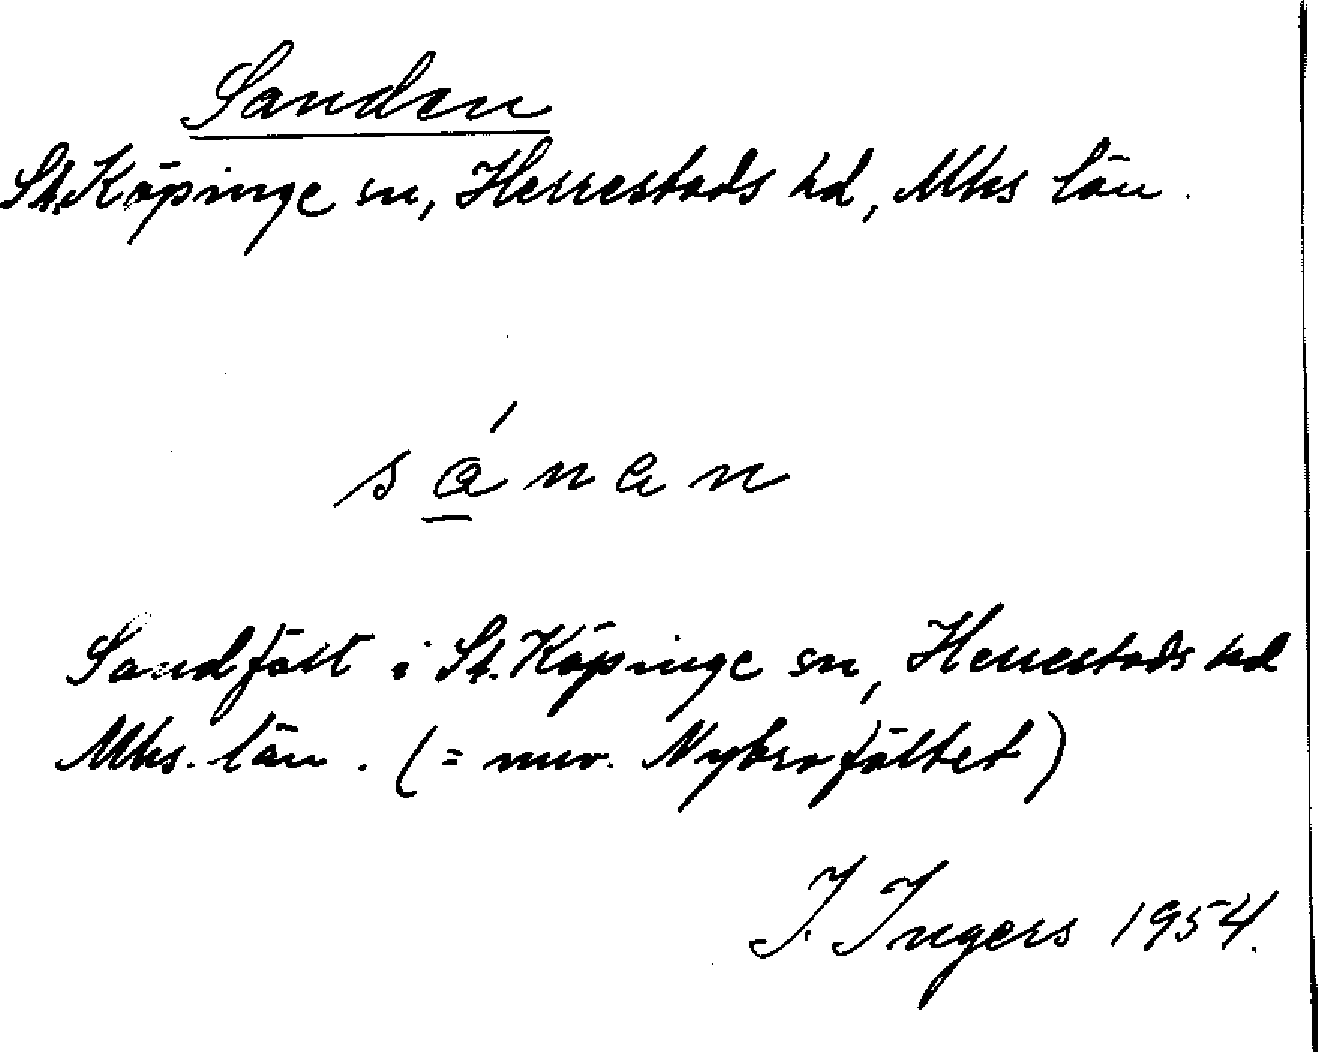 Sanden
St. Köpinge sn, Herrestads hd, Mhs län.
sánan
Sandfält i St. Köpinge sn, Herrestads hd
Mhs. län. (= nuv. Nybrofältet)
I. Ingers 1954.